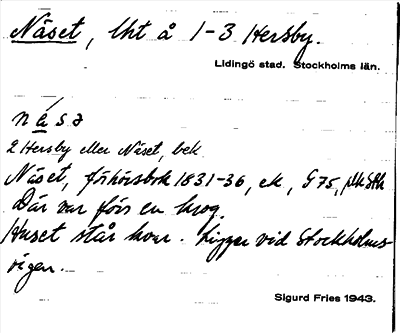 Näset, lht å 1-3 Hersby.
Lidingö stad. Stockholms län.
näsa
2 Hersby eller Näset, bek
Näset, förhörsbok 1831-36, ek, G 75,
Där var förr en krog.
Huset står kvar. Ligger vid Stockholms-
vägen.
Sigurd Fries 1943.